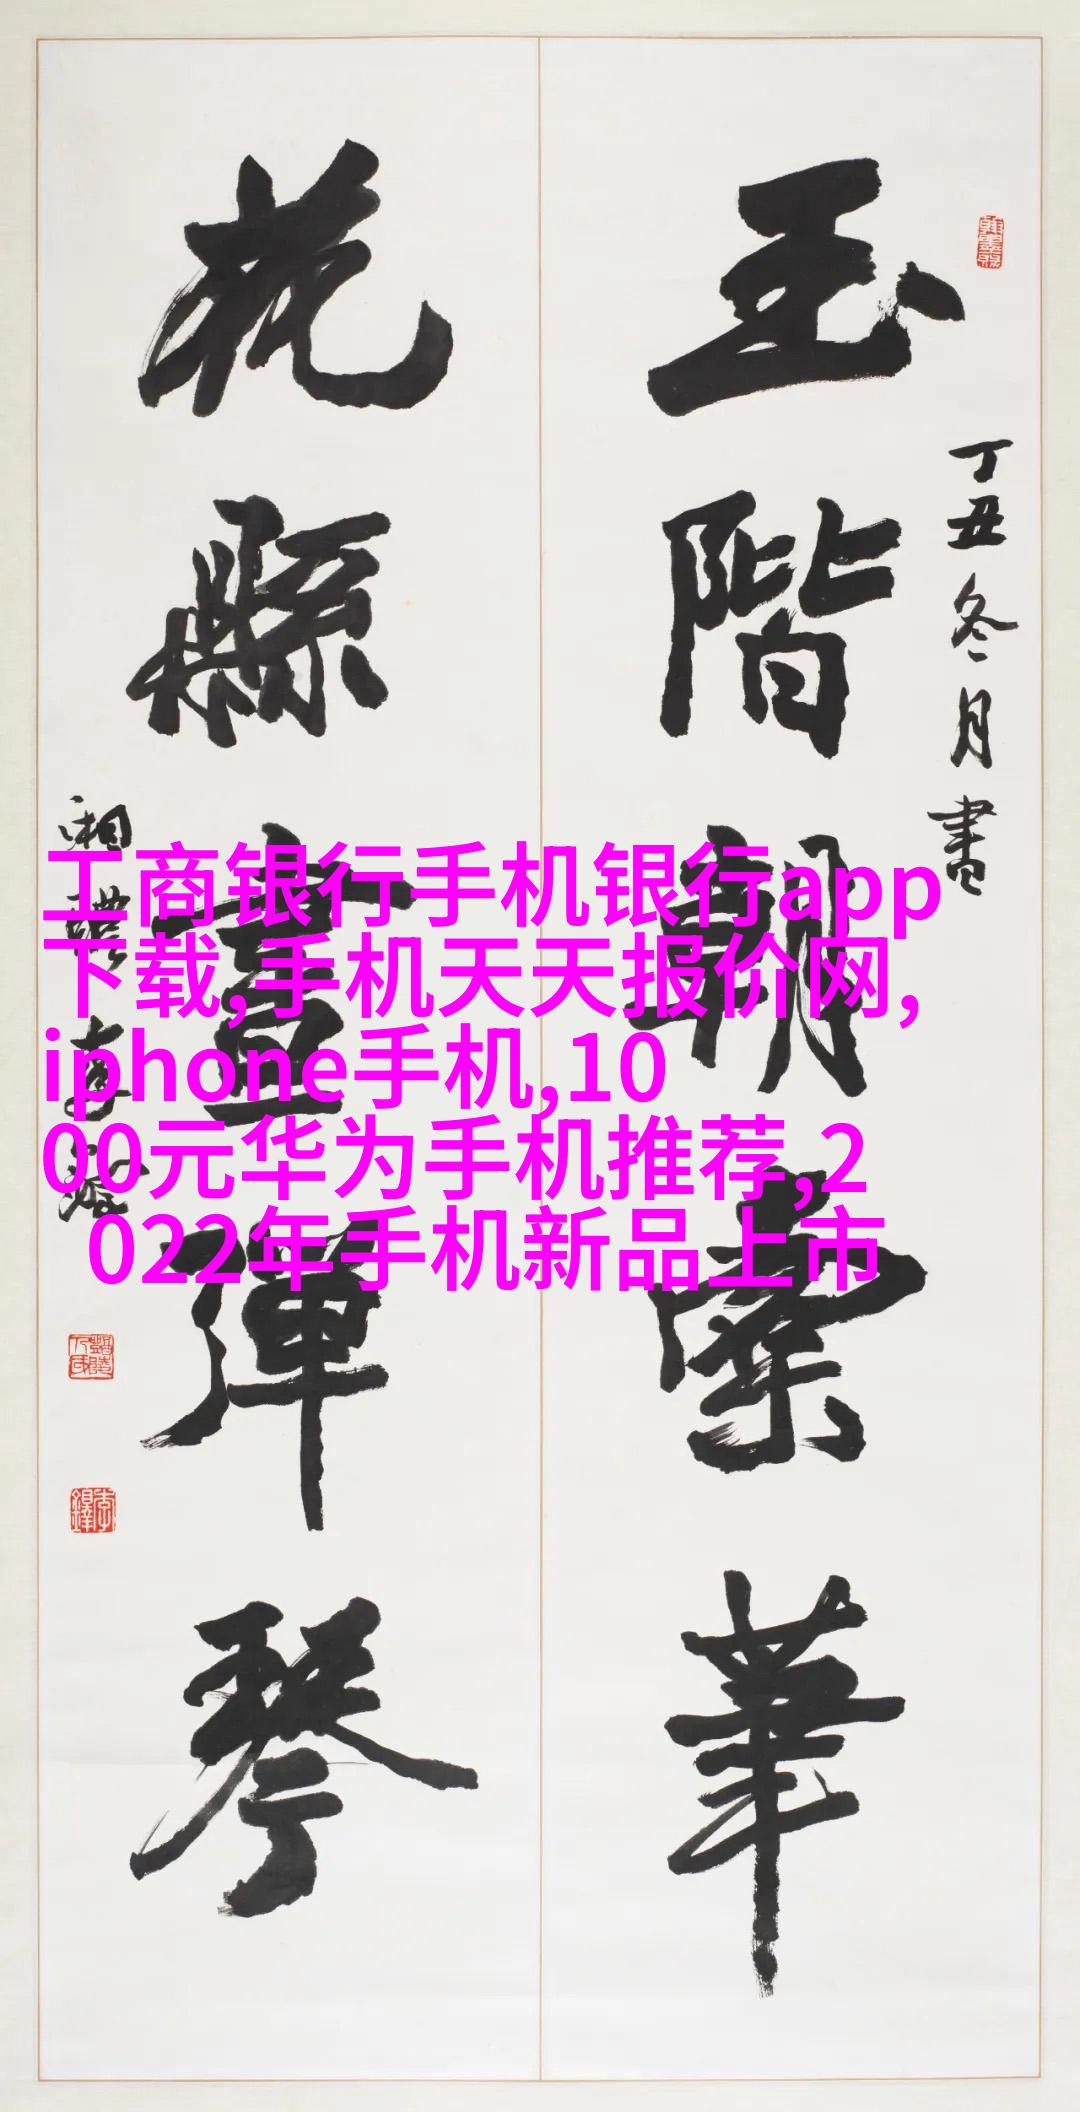 玉階朝紫華
丁丑冬月書
花縣晝彈琴
湘醴李鐸
工商银行手机银行app
下载,手机天天报价网,
iphone手机,10
00元华为手机推荐,2
022年手机新品上市
李鐸